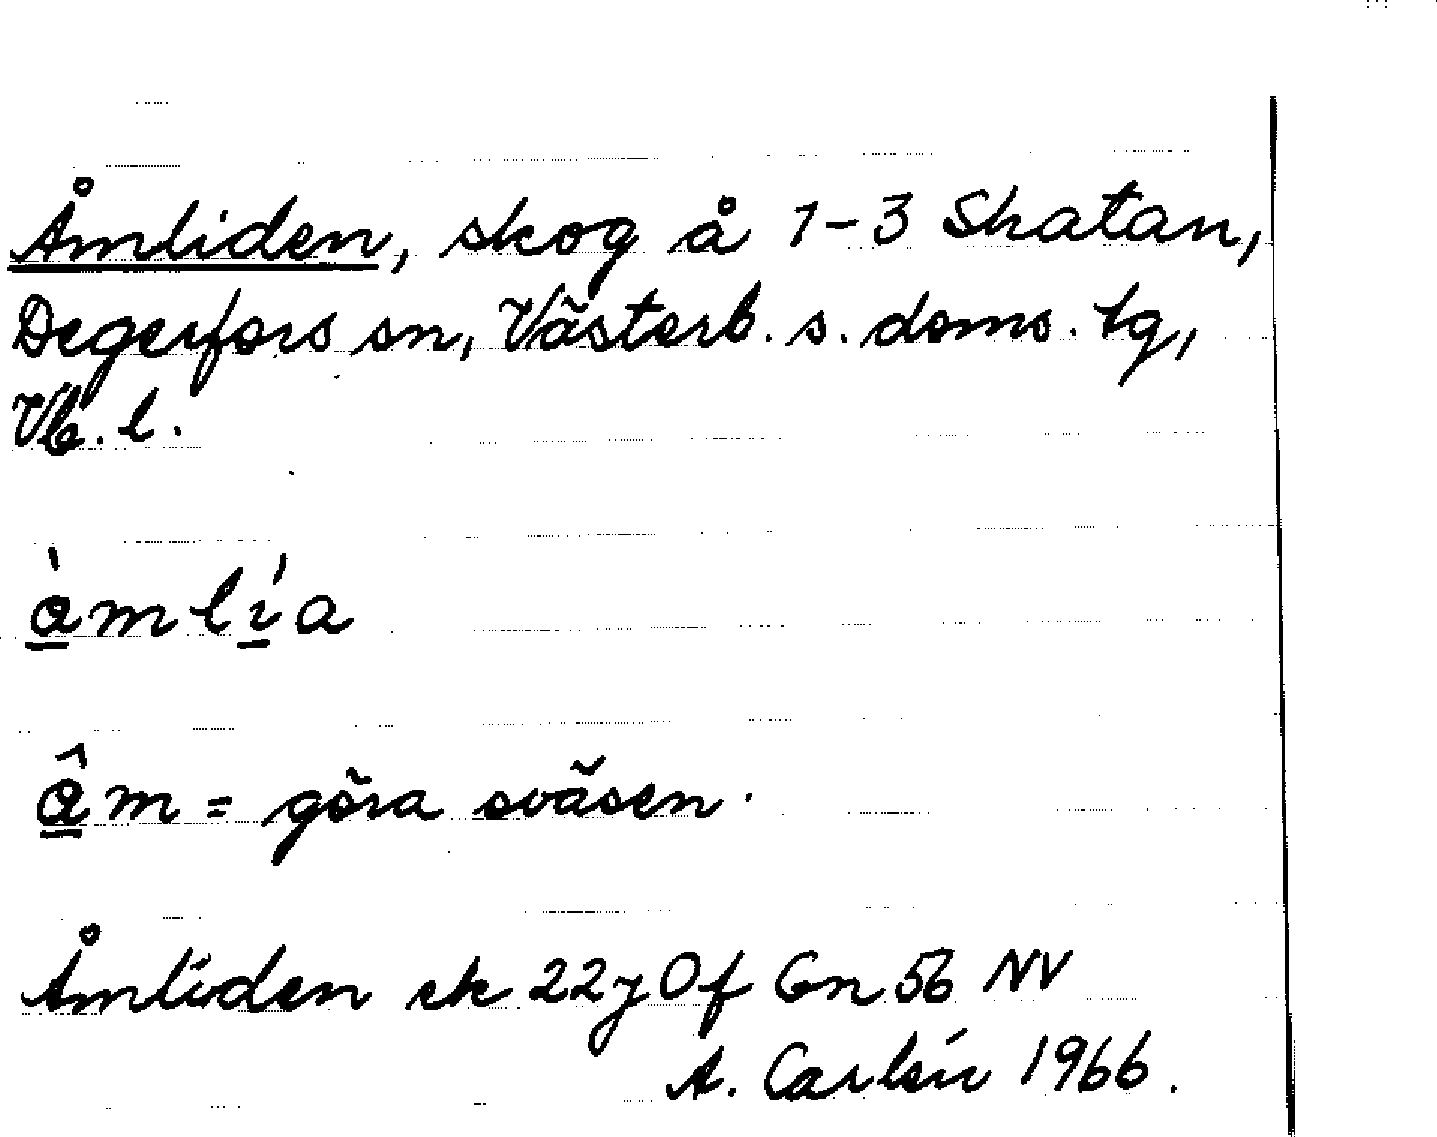 Åmliden, skog å 1-3 Skatan,
Degerfors sn, Västerb. s. doms. tg,
Vb. l.
å̀mlía
å̂m = göra sväsen.
Åmliden ek 22J0f Gn 56 NV
A. Carlsén 1966.